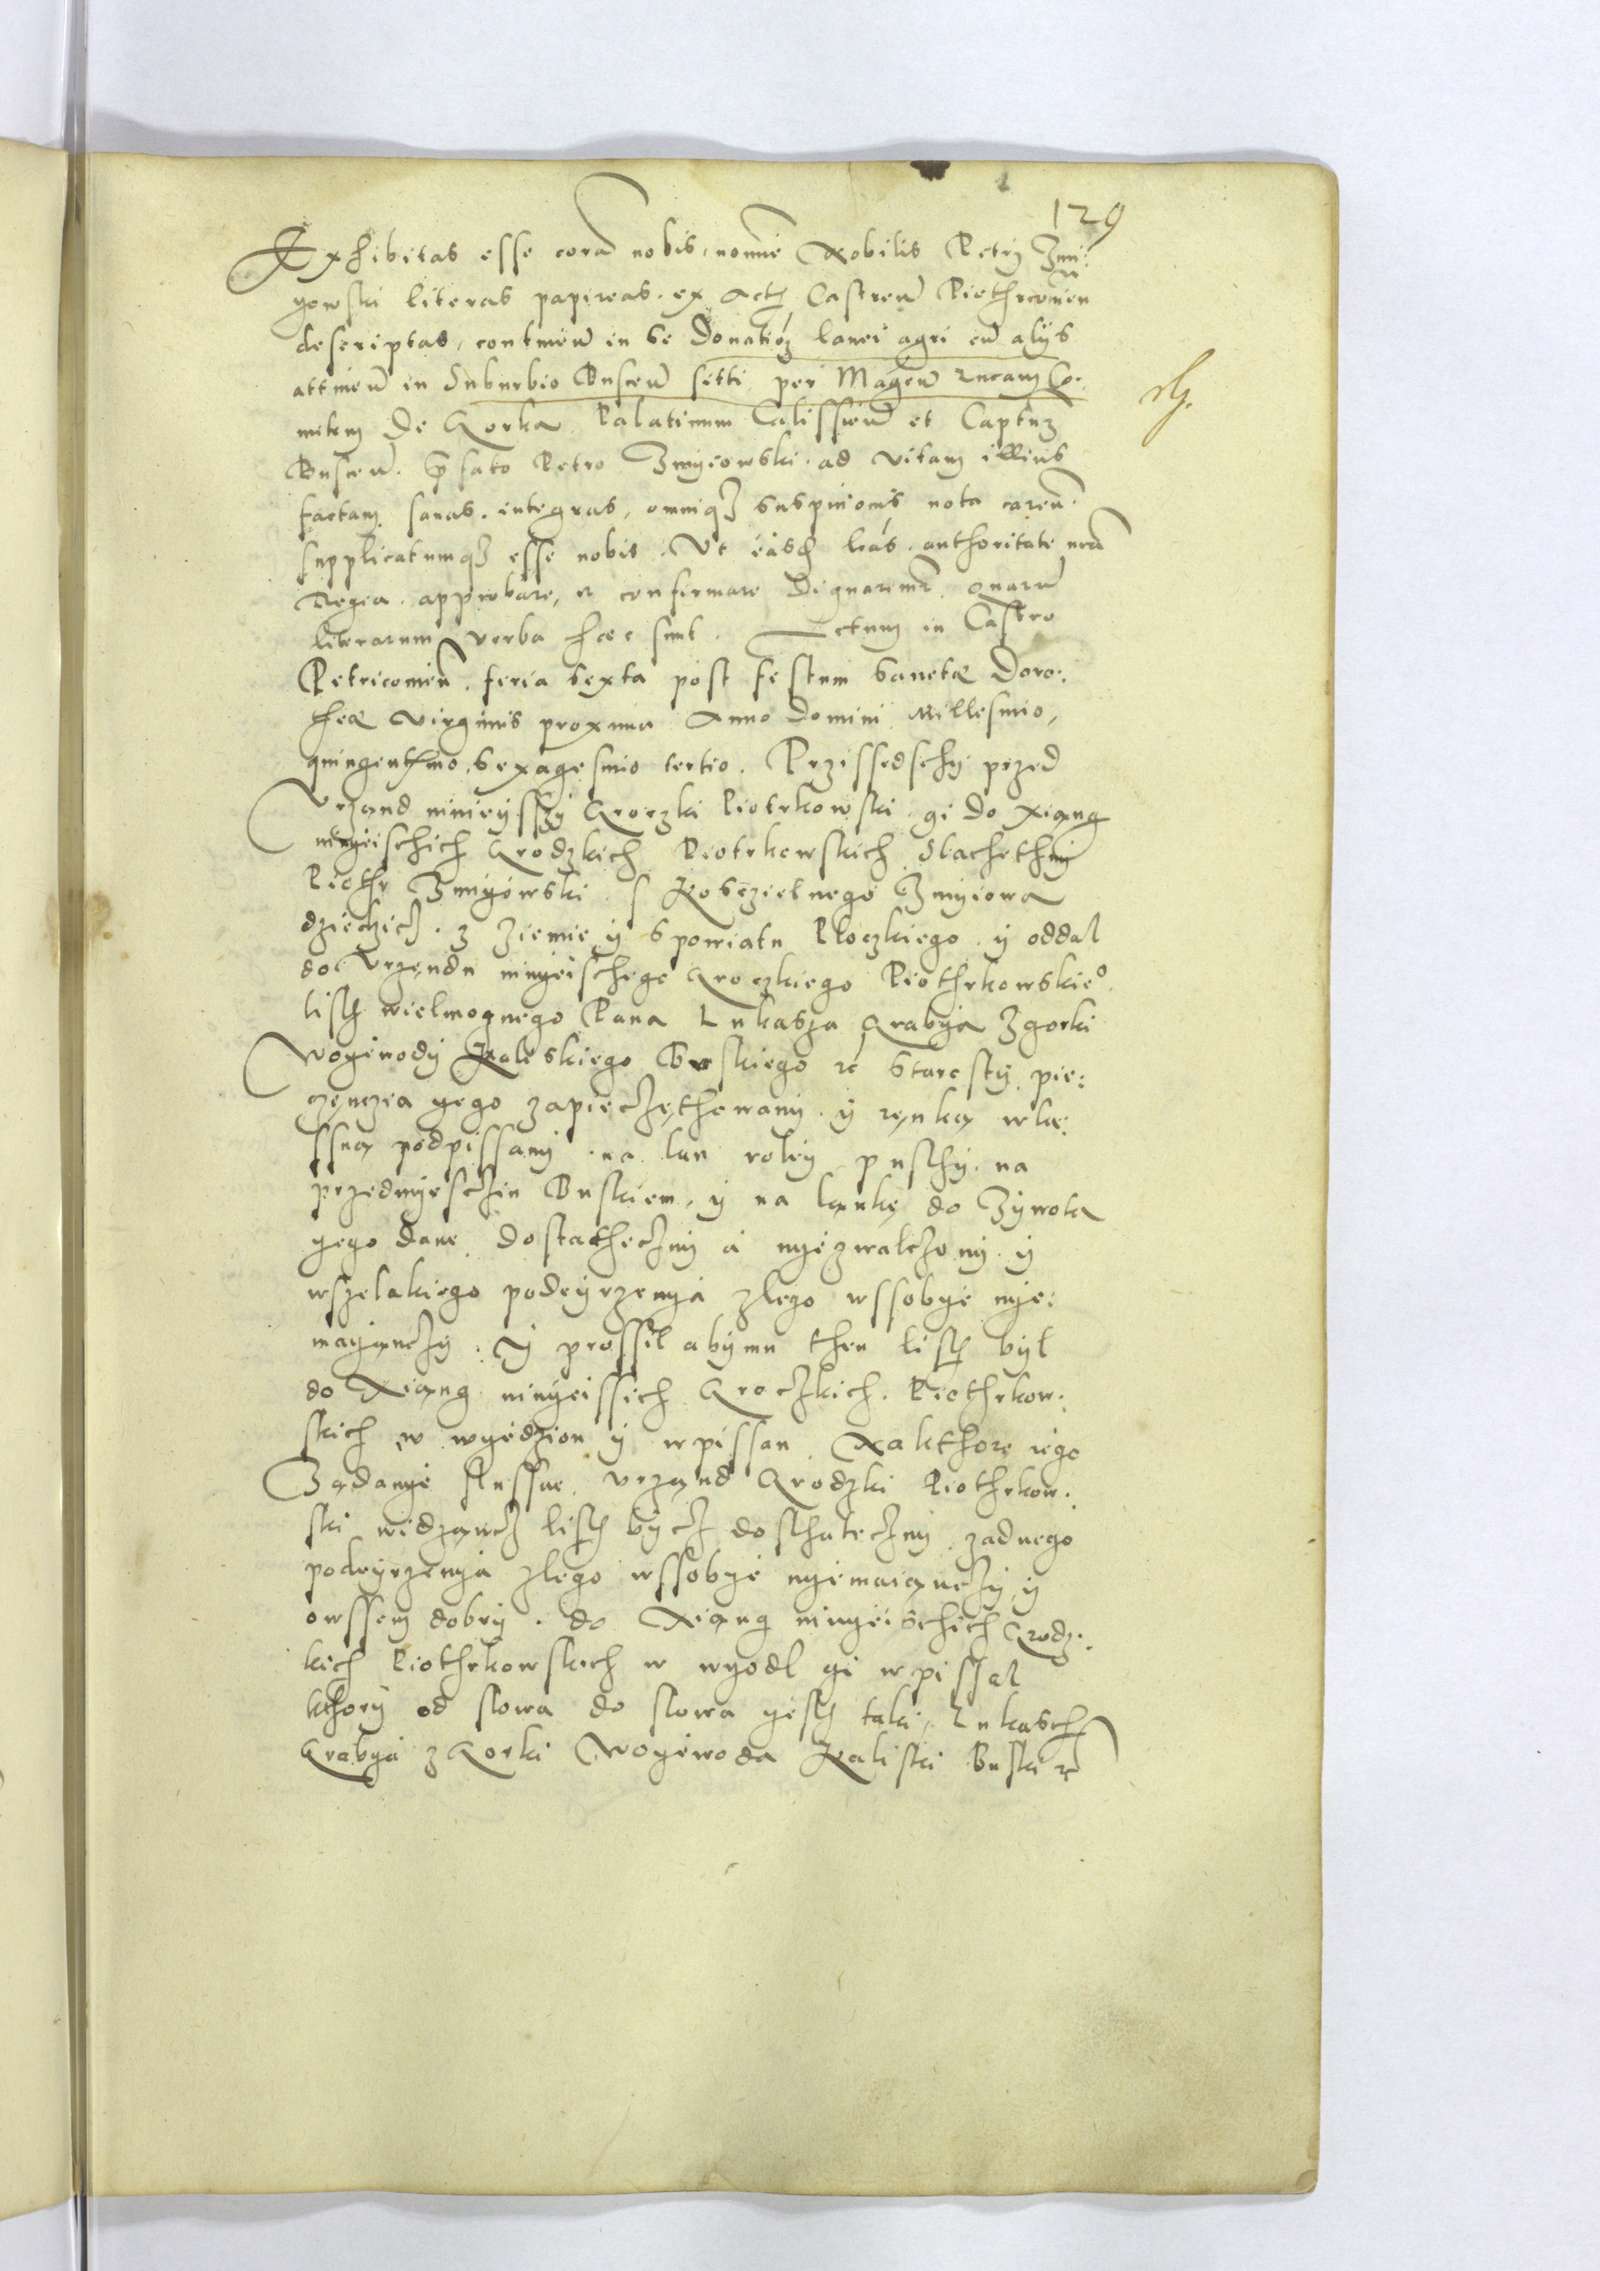 129
Exhibitas esse cora nobis, nomine Nobilis Petri Zmi:
gowski literas papireas, ex actis Castren Piethrcouien
descriptas, continen in se Donatioz lanei agri cu alys
attinen in Suburbio Buscen sitti, per Magcu Lucam Co:
mitem De Gorka, Palatinum Calissien et Captuz
Buscen. Pfato Petro Zmyiowski, ad vitam illius
factam, sanas, integras, omniqz suspitionis nota caren.
supplicatumqz esse nobis, Ut easd lras, authoritate nra
Regia, approbare, et confirmare Dignaremur, quaru
literarum verba haec sunt. Actum in Castro
Petricouien, feria sexta post festum Sanctae Doro:
theae Virginis proxima Anno Domini Millesimo,
quingentmo, Sexagesimo tertio. Przissedschy przed
Vrzand ninieyszy Groczki Piotrkowski, gi do Xiang
ningeischich Grodzkich Piotrkowskich Slachethny
Piothr Zmigowski, s Kosczielnego Zmyiowa
dziedzicz, z ziemie y s powiatu Ploczkiego, y oddal
do Vrzendu ningeischego Groczkiego Piothrkowskieo
listh wielmoznego Pana Lukasza Grabya Zgorki
Woyewody Kaliskiego Buskiego rc Starosty, pie:
czenczia yego zapieczethowany, y renka wla:
ssna podpissany, na lan roley pusthy, na
przedmyesciu Buskiem, y na lanke do Zywota
yego dane, dostatheczny a nyezwalczony y
wszelakiego podeyrzenya zlego wssobye nye:
mayanczy. Y prossil abymu then listh byl
do Xiang ningeissich Groczkich, Piothrkow:
skich w wyedzion y wpissan, Nakthore iego
Zadanye slussne, vrzand Grodzki Piothrkow:
ski widzancz listh bycz dosthateczny, zadnego
podeyrzenya zlego wssobye nyemaianczy, y
owssem dobry, do Xiang ningeischich Grodz:
kich Piothrkowskich w wyodl gi wpissal
kthory od slowa do slowa yesth taki, Lukasch
Grabya z Gorki Woyewoda Kaliski Buski rc